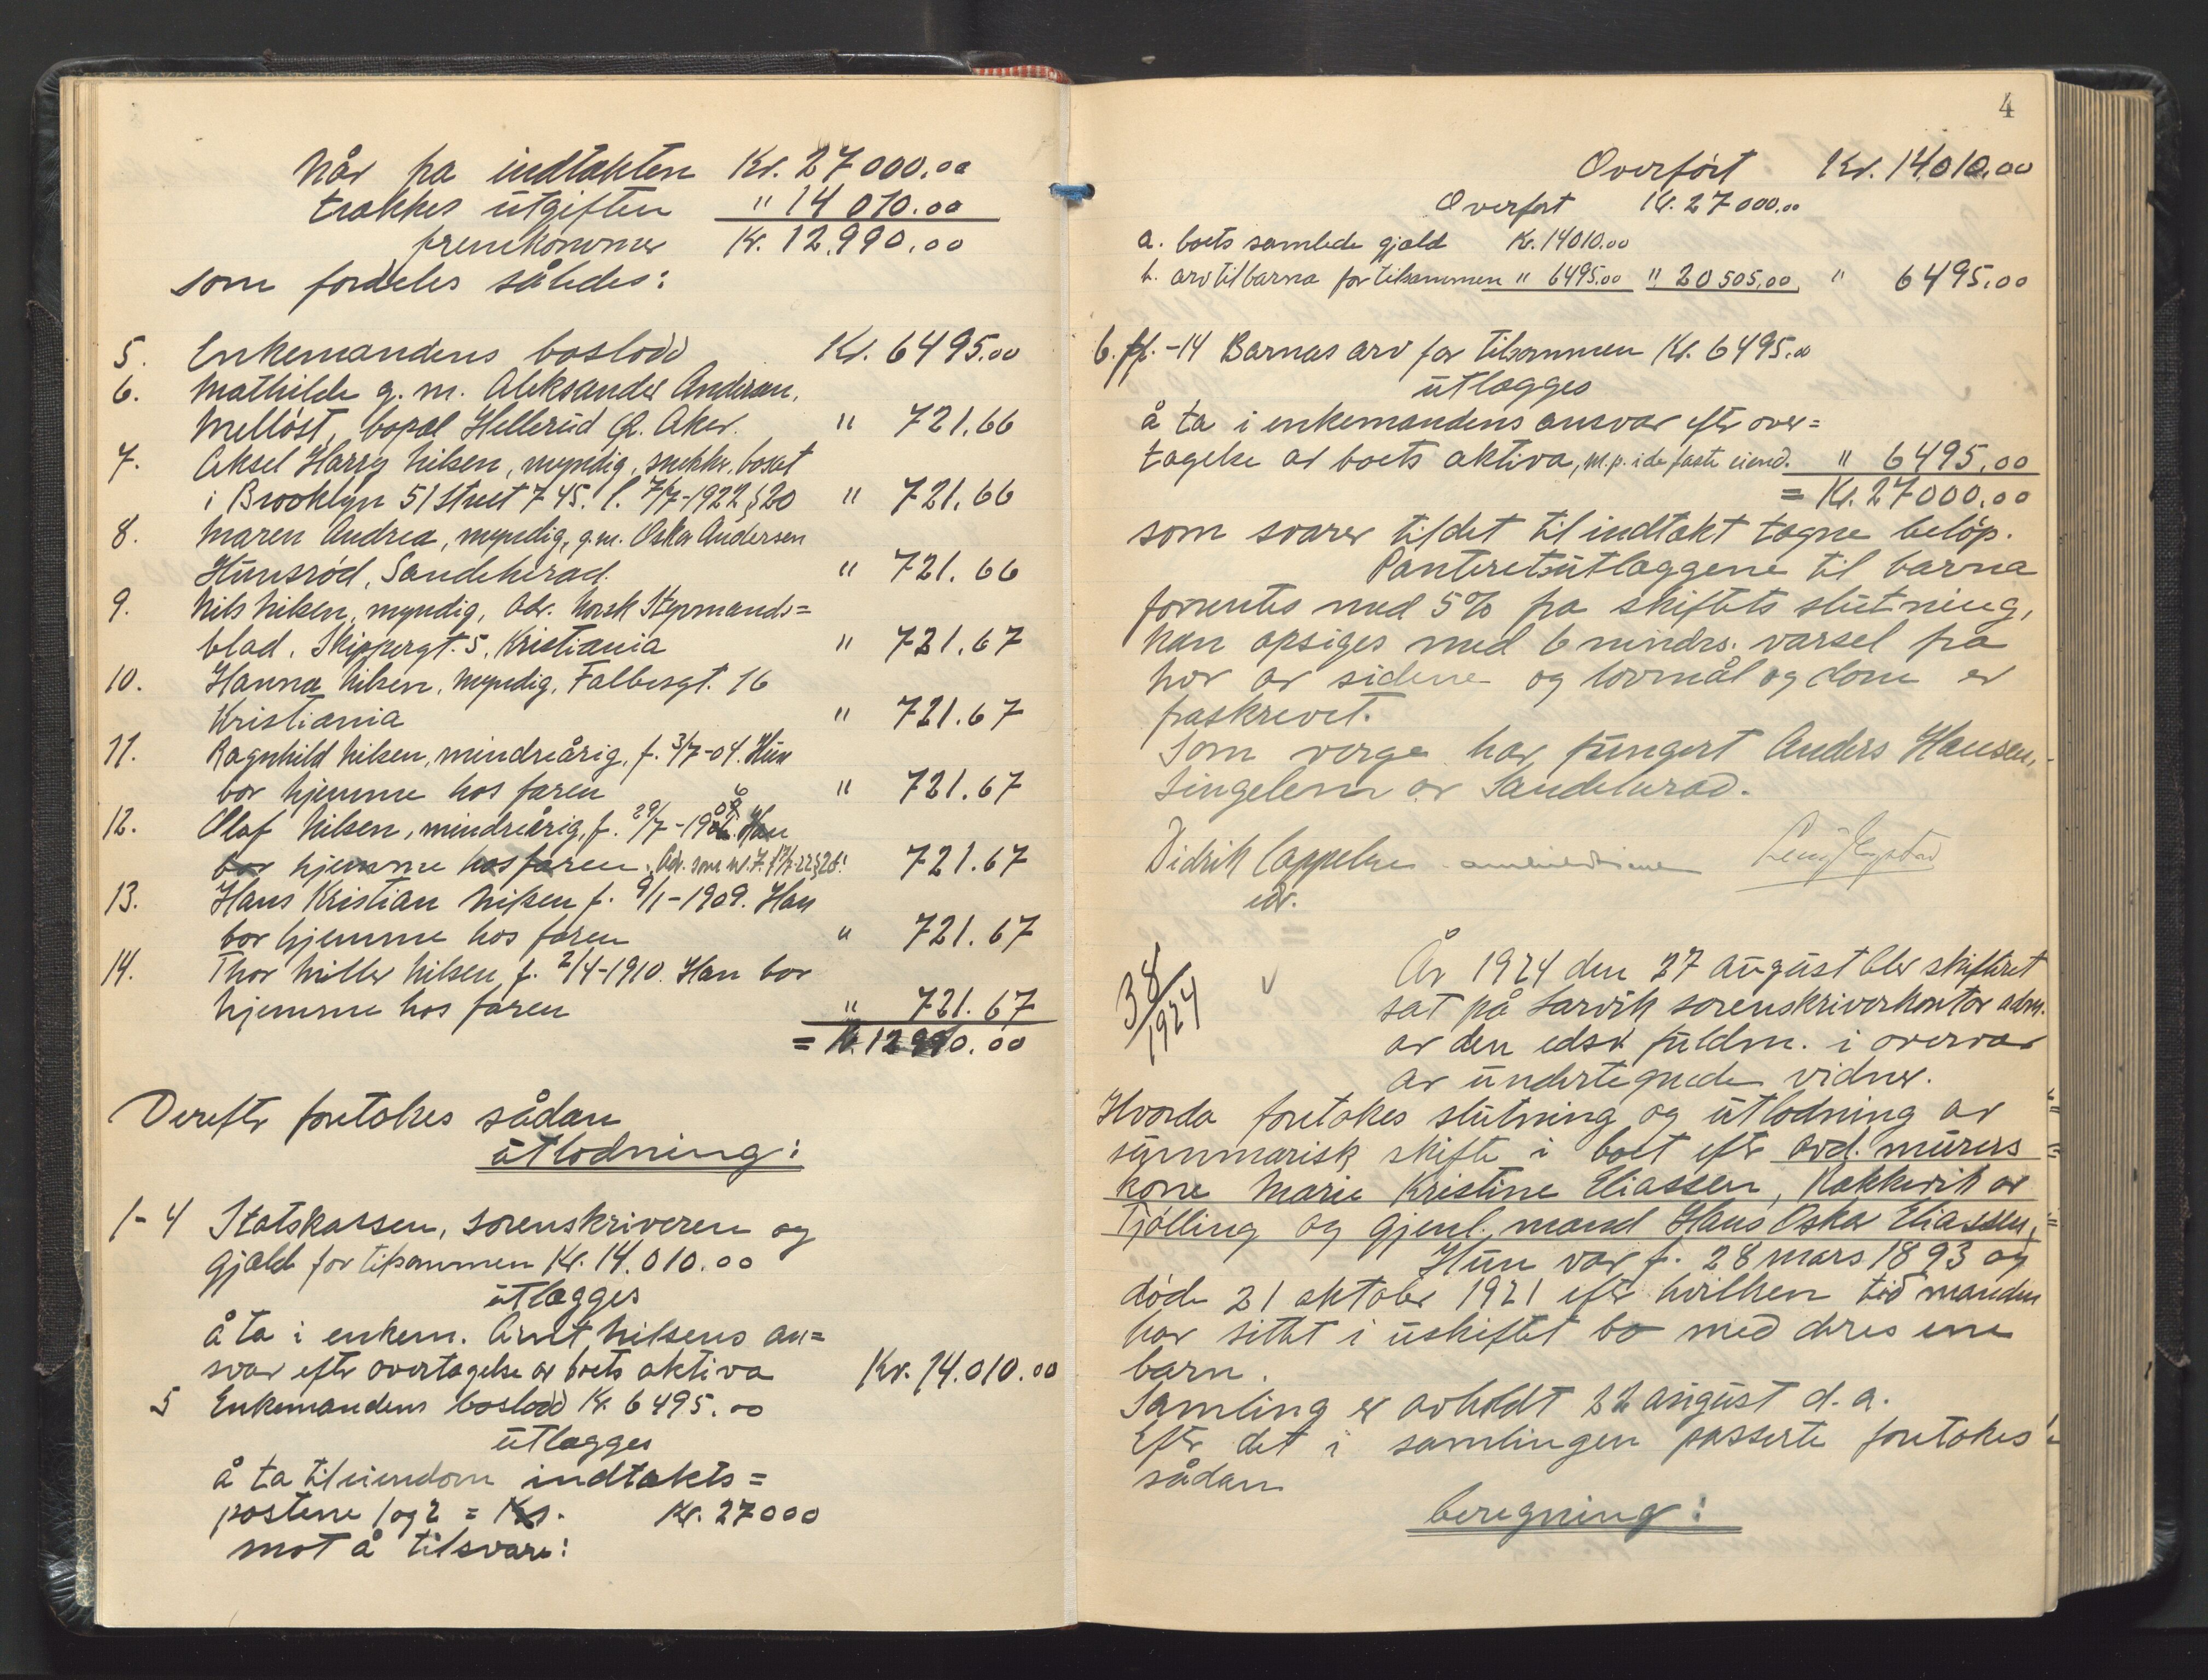 Når fra indtækten Kr. 27000.00
trækkes utgiften " 14 010.00
fremkommer Kr. 12.990.00
som fordeles således:
5. Enkemandens boslodd Kr. 6495.00
6. Mathilde g. m. Aleksander Andersen,
Melløst, bopæl Hellerud Ø. Aker. " 721.66
7. Aksel Harry Nilsen, myndig, snekker, bosat
i Brooklyn 51 Street 745. l. 7/7-1922 § 20 " 721.66
8. Maren Andrea, myndig, g.m. Oskar Andersen
Hunsrød, Sandeherad. " 721.66
9. Nils Nilsen, myndig, adr. Norsk Styrmands=
blad, Skippergt. 5, Kristiania " 721.67
10. Hanna Nilsen, myndig, Falbesgt. 16
Kristiania " 721.67
11. Ragnhild Nilsen, mindreårig, f. 3/7-04. Hun
bor hjemme hos faren " 721.67
12. Olaf Nilsen, mindreårig, f. 29/7-1906. Han
bor hjemme hos faren. Adr. som nr. 7. 721.67
13. Hans Kristian Nilsen f. 9/1-1909. Han
bor hjemme hos faren " 721.67
14. Thor Miller Nilsen, f. 2/4-1910. Han bor
hjemme hos faren " 721.67
= Kr. 12990.00
Derefter foretokes sådan
utlodning:
1-4 Statskassen, sorenskriveren og
gjæld for tilsammen Kr. 14.010.00
utlægges
å ta i enkem. Arnt Nilsens an=
svar efter overtagelse av boets aktiva Kr. 14.010.00
5 Enkemandens boslodd Kr. 6495.00
utlægges
å ta til eiendom indtækts=
postene 1 og 2 = Kr. Kr. 27000
mot å tilsvare:
4
Overført Kr. 14.010.00
Overført Kr. 27000.00
a. boets samlede gjæld Kr. 14010.00
b. arv til barna for tilsammen " 6495.00 " 20505.00 " 6495.00
6. -14 Barnas arv for tilsammen Kr. 6495.00
utlægges
å ta i enkemandens ansvar efter over=
tagelse av boets aktiva, m. p. i de faste eiend. " 6495.00
= Kr. 27000.00
som svarer til det til indtækt tagne beløp.
Panteretsutlæggene til barna
forrentes med 5% fra skiftets slutning,
kan opsiges med 6 mndrs. varsel fra
hver av sidene og lovmål og dom er
fraskrevet.
Som verge har fungert Anders Hansen,
Lingelem av Sandeherad.
Didrik Cappelen
edv.
38/1924
År 1924 den 27 august blev skifteret
sat på Larvik sorenskriverkontor adm.
av den edsv. fuldm. i overvær
av undertegnede vidner.
Hvorda foretokes slutning og utlodning av
summarisk skifte i boet efter avd. murers
kone Marie Kristine Eliassen, Rakkevik av
Tjølling og gjenl. mand Hans Oskar Eliassen,
Hun var f. 28 mars 1893 og
døde 21 oktober 1921 efter hvilken tid manden
har sittet i uskiftet bo med deres ene
barn.
Samling er avholdt 22 august d. a.
Efter det i samlingen passerte foretokes
sådan
beregning: